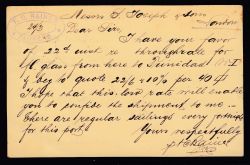 Messrs S. Joseph & Sons
London
Dear Sirs,
I have your favor
of 22nd inst re through rate for
glass from here to Trinidad
& beg to quote 22/6 & 10% per 40 cft
I hope that this low rate will enable
you to confide the shipment to me
There are regular sailings every fortnight
for this port.
Yours respectfully